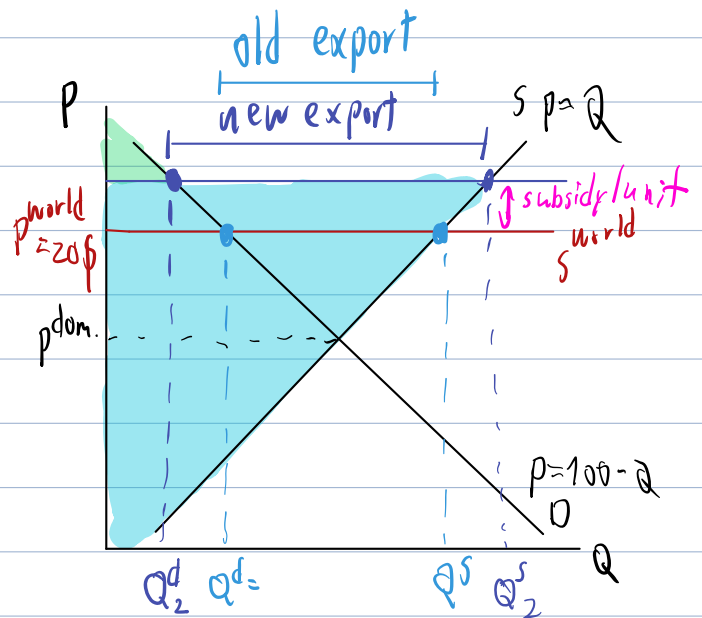 old export
P
new export
S P=Q
subsidy/unit
pworld
=20$
Sworld
pdom.
P=100-Q
D
Q
Qd2
Qd=
QS
QS2